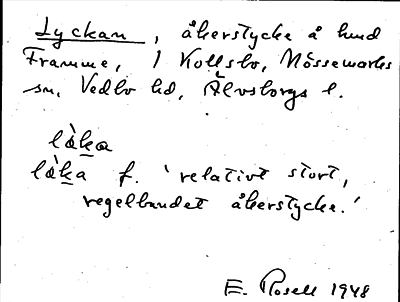 Lyckan, åkerstycke å hmd
Framme, 1 Kollsbo, Mossemarks
sn, Vedbo hd, Älvsborgs l.
lȧka
lȧka f. 'relativt stort,
regelbundet åkerstycke.'
E. Rosell 1948